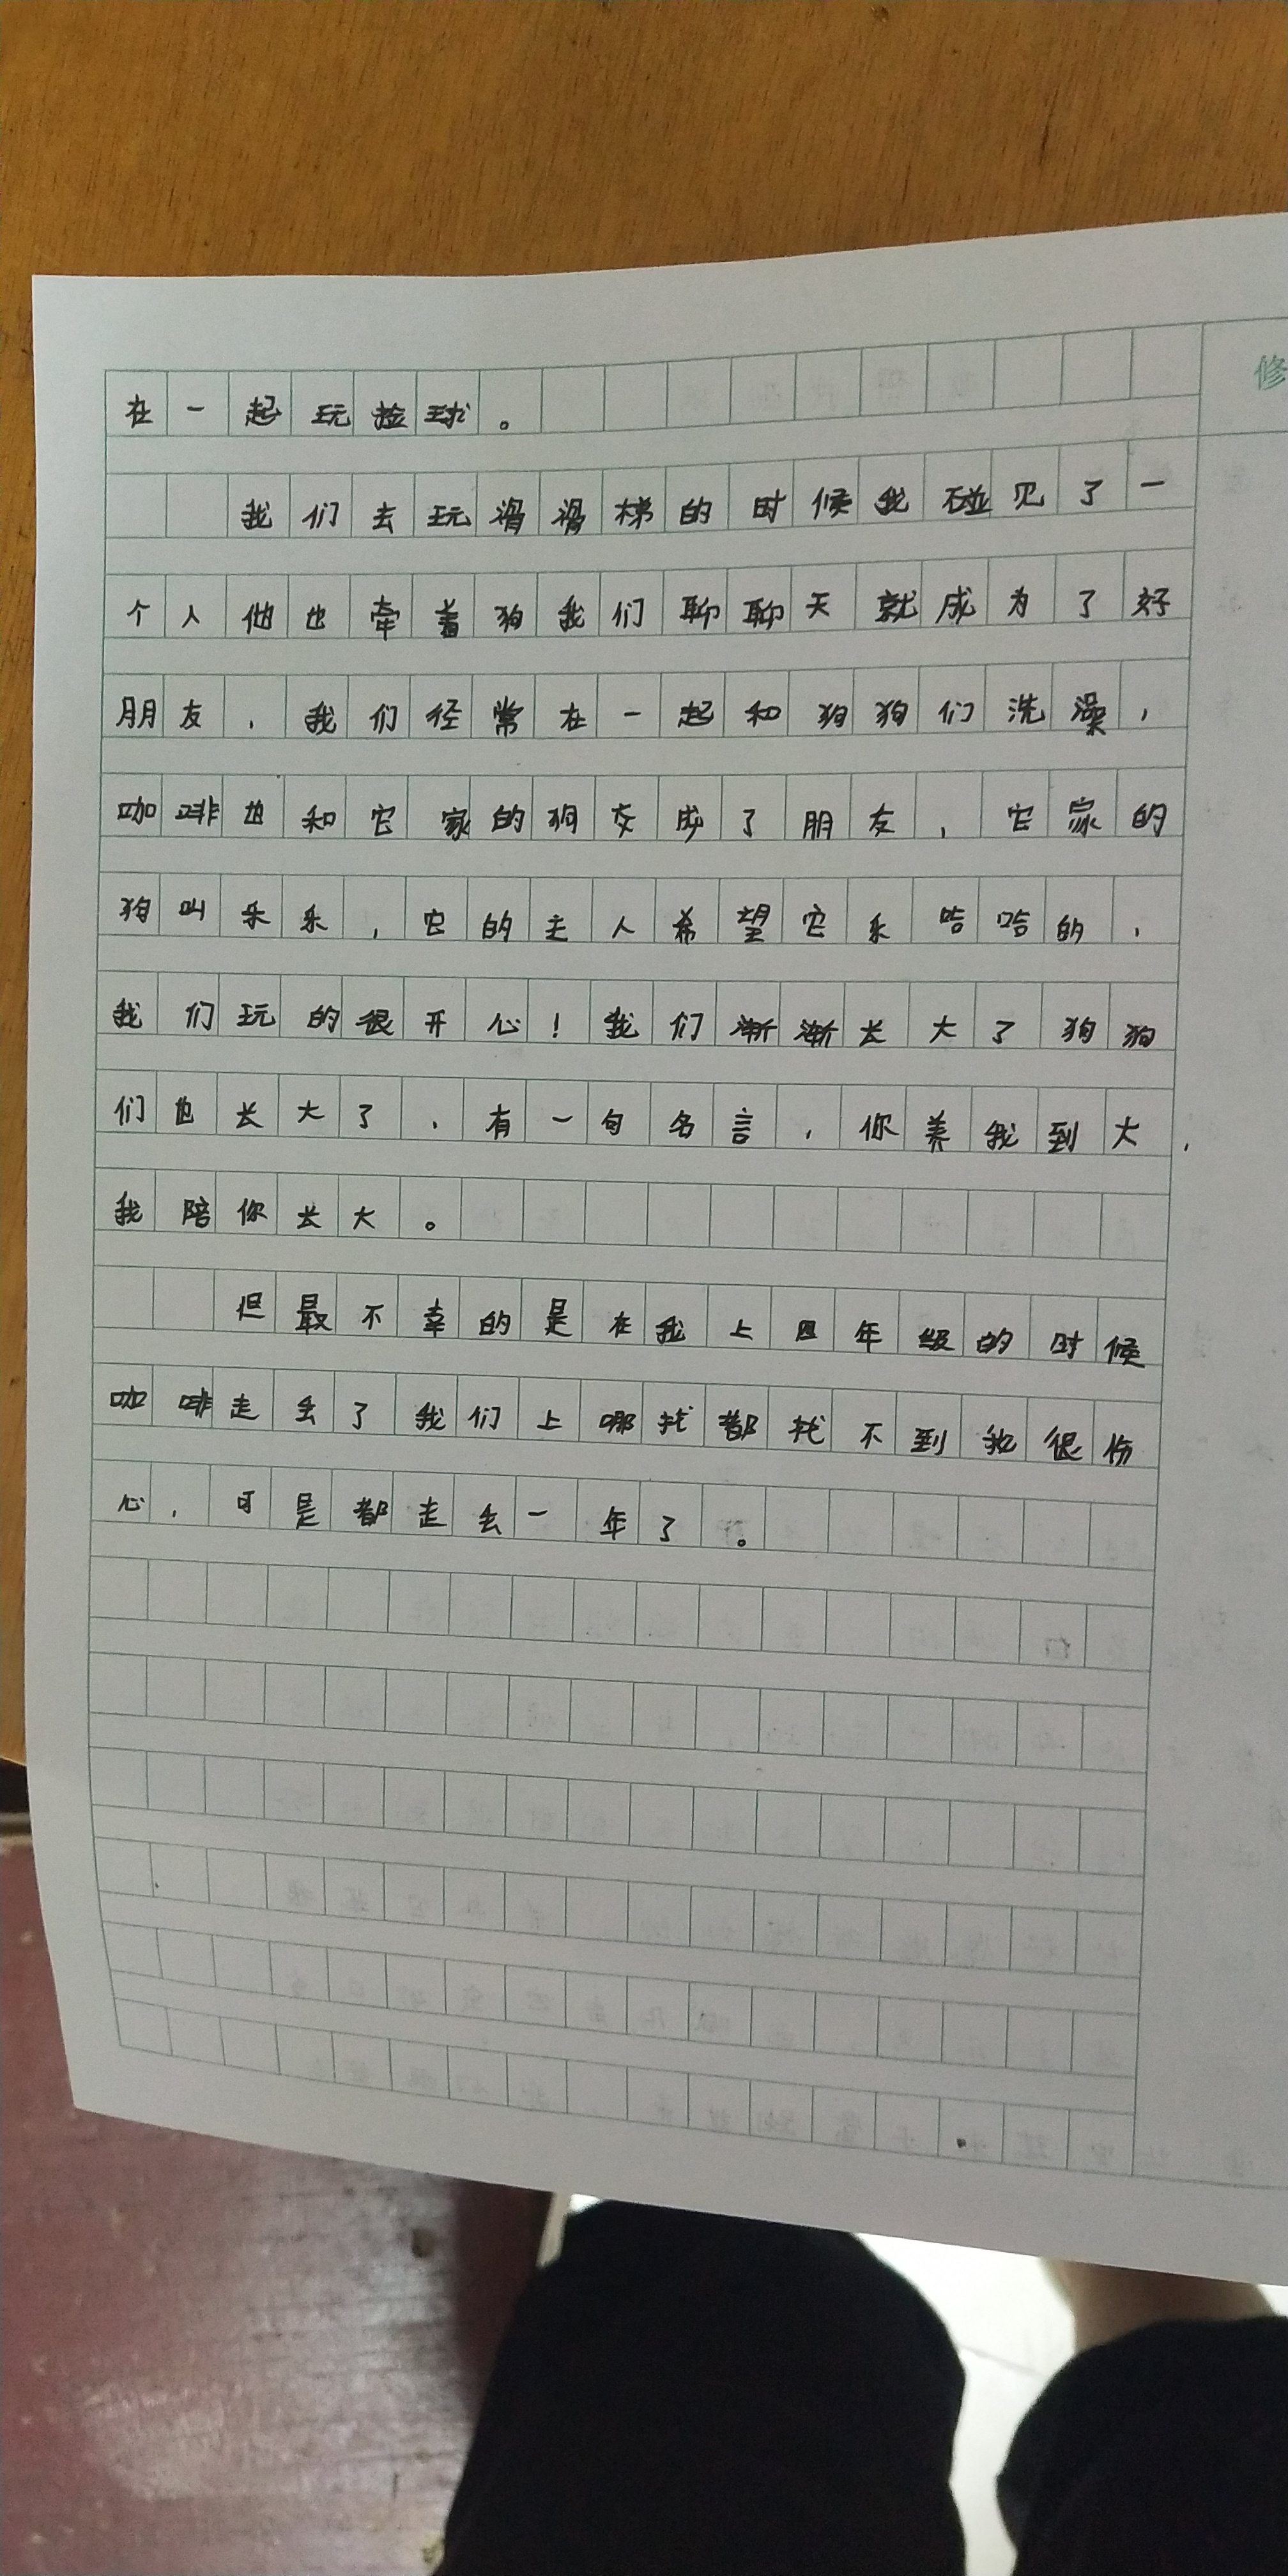 修
在一起玩捡球。
我们去玩滑滑梯的时候我碰见了一
个人他也牵着狗我们聊聊天就成为了好
朋友，我们经常在一起和狗狗们洗澡，
咖啡也和它家的狗交成了朋友，它家的
狗叫乐乐，它的主人希望它乐哈哈的，
我们玩的很开心！我们渐渐长大了狗狗
们也长大了，有一句名言，你养我到大，
我陪你长大。
但最不幸的是在我上四年级的时候
咖啡走丢了我们上哪找都找不到我很伤
心，可是都走丢一年了。